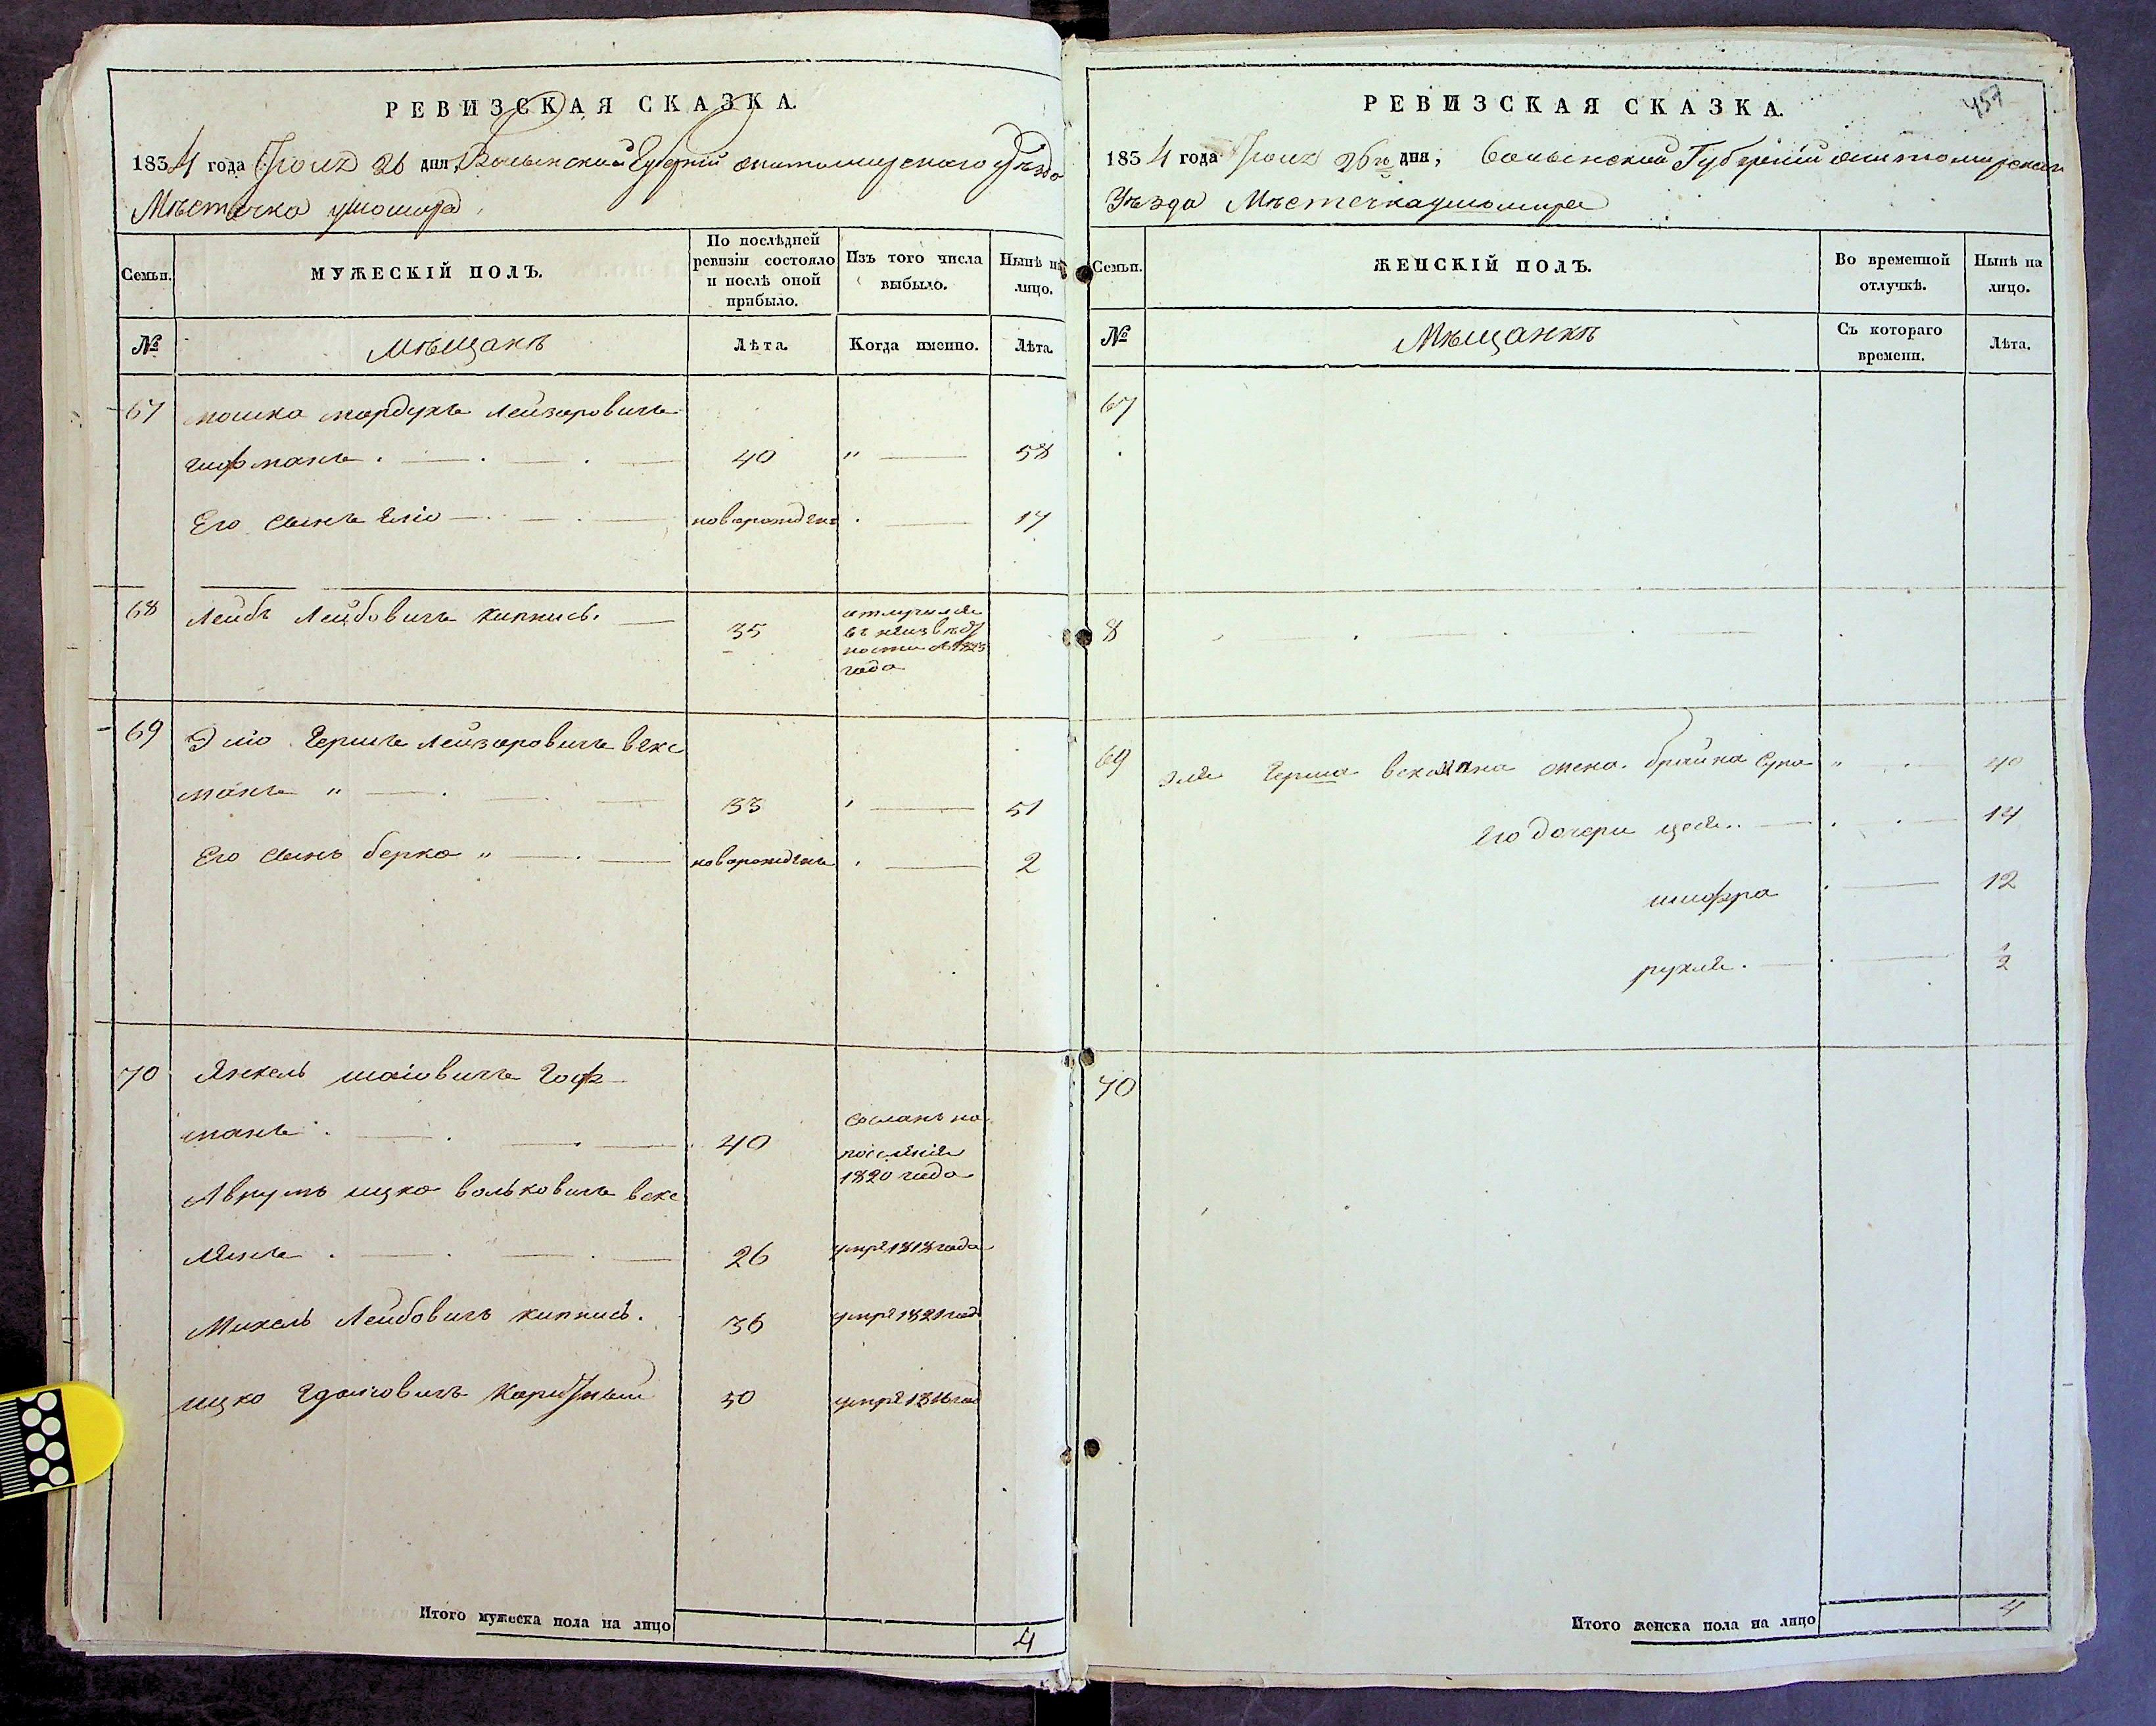 РЕВИЗСКАЯ СКАЗКА.
1834 года Іюня 26 дня, Волынской Губерніи Житомирскаго уѣзда
Мѣстечка ушомира
Семьи.
МУЖЕСКІЙ ПОЛЪ.
По послѣдней ревизіи состояло и послѣ оной прибыло.
Изъ того числа выбыло.
Нынѣ на лицо.
№
Мѣщанъ
Лѣта.
Когда именно.
Лѣта.
67 мошко мордухъ Лейзаровичъ
гофманъ . 40 " 58
Его сынъ Еліо новорожденъ 17
68 Лейбъ Лейбовичъ кипнисъ. 35
отлучился
въ неизвѣст
ности с 1823
года
69 Эліо Гершъ Лейзаровичъ векс
манъ " 33 " 51
Его сынъ берко " новорожденъ 2
70 Янкель шаіовичъ Гоф
манъ . 40
Сосланъ на
поселеніе
1820 года
Аврумъ ицко вольковичъ векс
26 умре 1818 года
Михель Лейбовичъ кипнисъ. 36 умре 1821 год
ицко 50
Итого мужеска пола на лицо 4
457
РЕВИЗСКАЯ СКАЗКА.
1834 года Іюня 26го дня, Волынской Губерніи Житомирскаго
Уѣзда Мѣстечка ушомира
Семьи.
ЖЕНСКІЙ ПОЛЪ.
Во временной отлучкѣ.
Нынѣ на лицо.
№
Мѣщанкъ
Съ котораго времени.
Лѣта.
67
8
69 Эля Герша вексмана жена брайна Сура " 40
Его дочери цея.. 14
шифра 12
рухля. 2
70
Итого женска пола на лицо 4